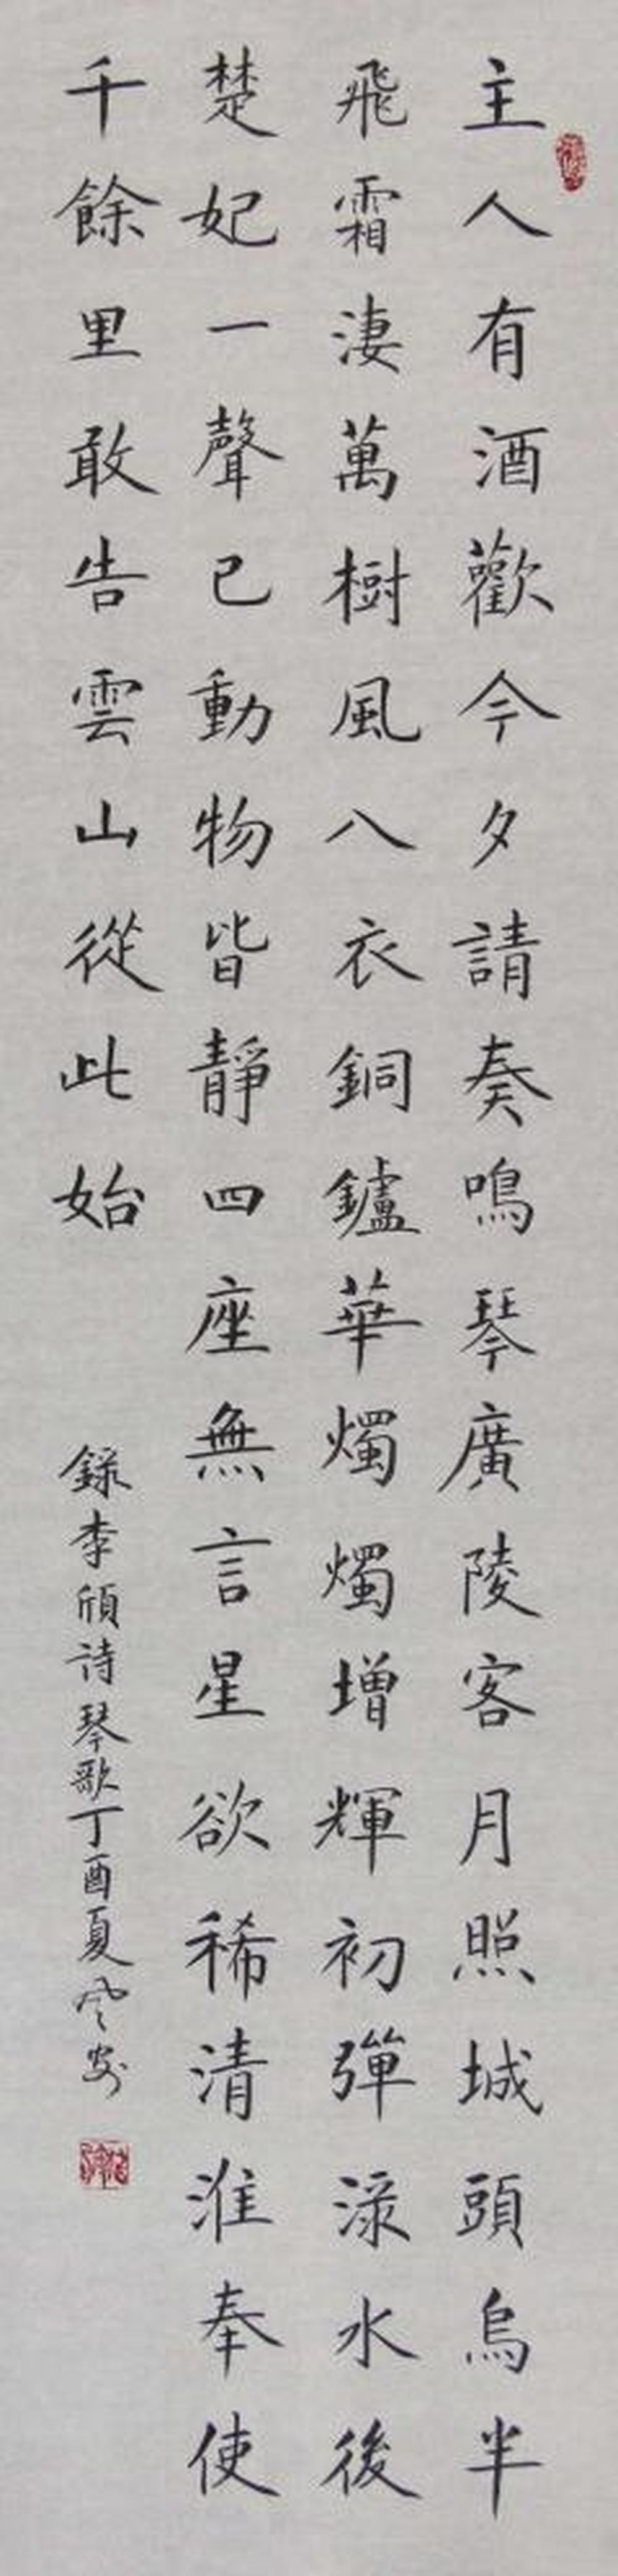 主人有酒歡今夕請奏鳴琴廣陵客月照城頭烏半
飛霜淒萬樹風八衣銅鑪華燭燭增輝初彈淥水後
楚妃一聲已動物皆靜四座無言星欲稀清淮奉使
千餘里敢告雲山從此始
錄李頎詩琴歌丁酉夏